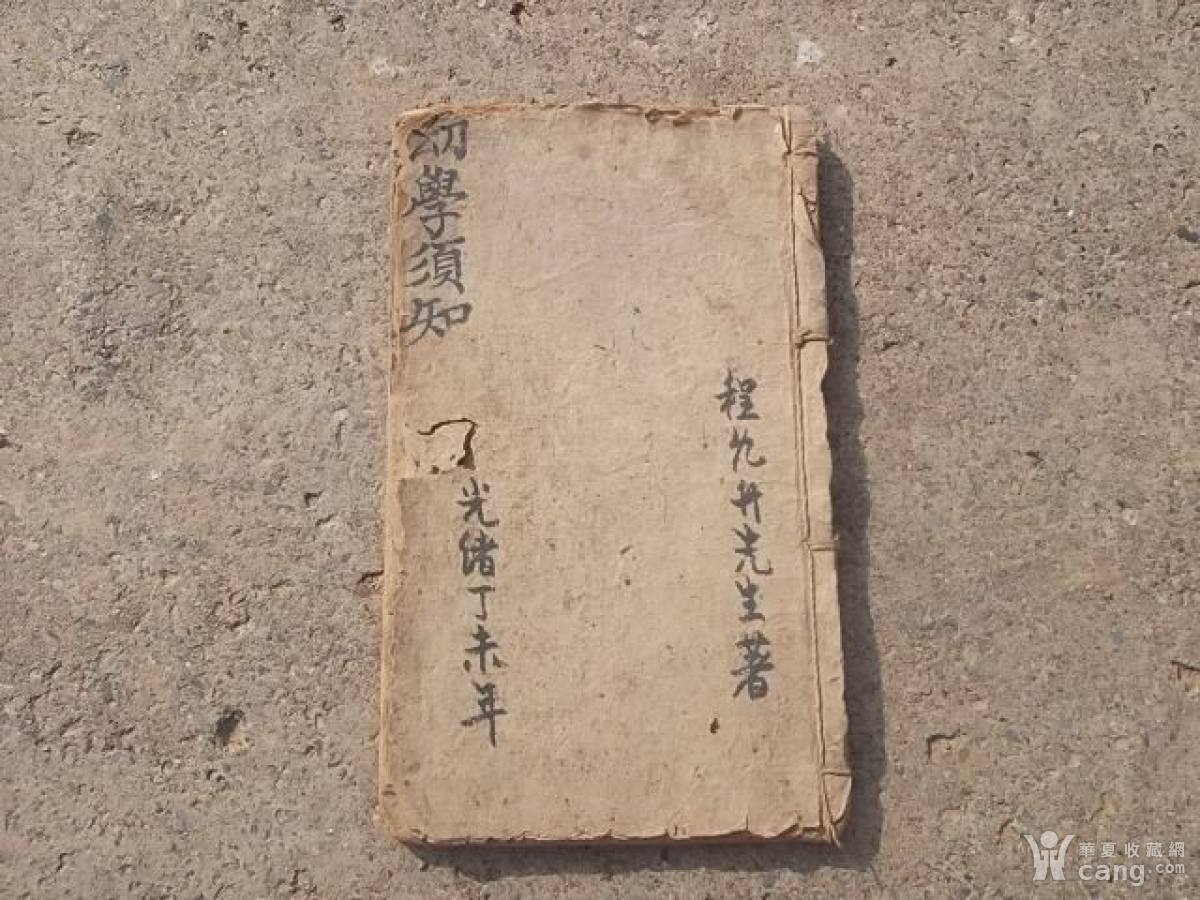 幼學須知
程允升先生著
光緒丁未年
華夏收藏網
cang.com